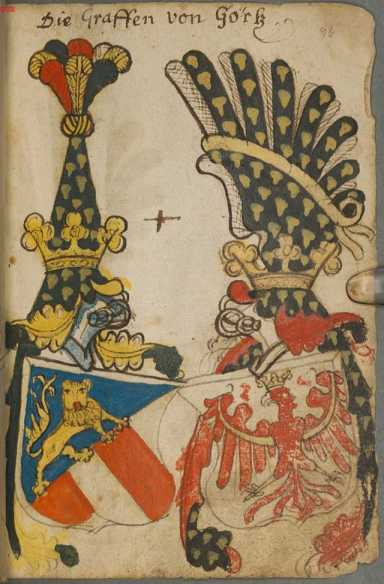 Die Graffen von Görtz